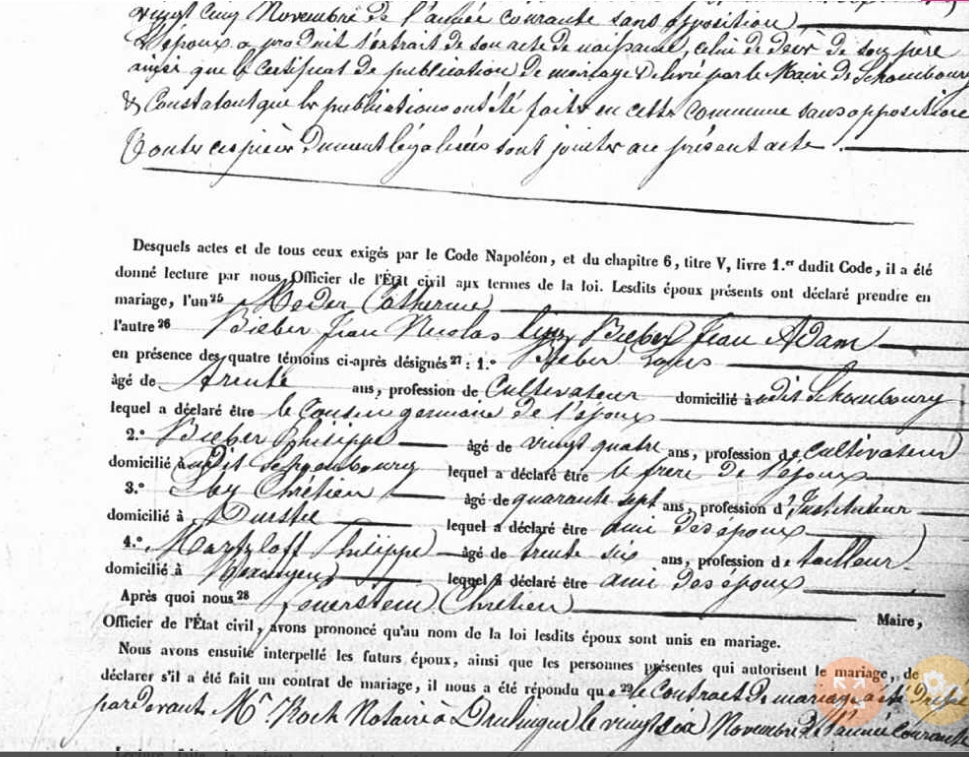 vingt cinq Novembre de l'année courante sans opposition
L'époux a produit l'extrait de son acte de naissance, celui de décès de son père
ainsi que le Certificat de publication de mariage délivré par le Maire de Schoenbourg
& Constatant que les publications ont été faites en cette commune sans opposition
Toutes ces pièces dument légalisées sont jointes au présent acte.
Desquels actes et de tous ceux exigés par le Code Napoléon, et du chapitre 6, titre V, livre 1.er dudit Code, il a été
donné lecture par nous, Officier de l'État civil aux termes de la loi. Lesdits époux présents ont déclaré prendre en
mariage, l'un 25 Meder Catherine
l'autre 26 Bieber Jean Nicolas Bieber Jean Adam
en présence des quatre témoins ci-après désignés 27 : 1.° Bieber Louis
âgé de trente ans, profession de Cultivateur domicilié à dit Schoenbourg
lequel a déclaré être le Cousin germain de l'époux
2.° Bieber Philippe âgé de vingt quatre ans, profession de Cultivateur
domicilié à dit Schoenbourg lequel a déclaré être le frère de l'époux
3.° Chrétien âgé de quarante sept ans, profession d'Instituteur
domicilié à Durstel lequel a déclaré être ami des époux
4.° Martzloff Philippe âgé de trente six ans, profession de tailleur
domicilié à lequel a déclaré être ami des époux
Après quoi nous 28 feuerstein Chrétien Maire,
Officier de l'État civil, avons prononcé qu'au nom de la loi lesdits époux sont unis en mariage.
Nous avons ensuite interpellé les futurs époux, ainsi que les personnes présentes qui autorisent le mariage, de
déclarer s'il a été fait un contrat de mariage, il nous a été répondu que 29 le Contract de mariage a été
par devant Mr Koch Notaire à Drulingen le vingt six Novembre de l'année Courante